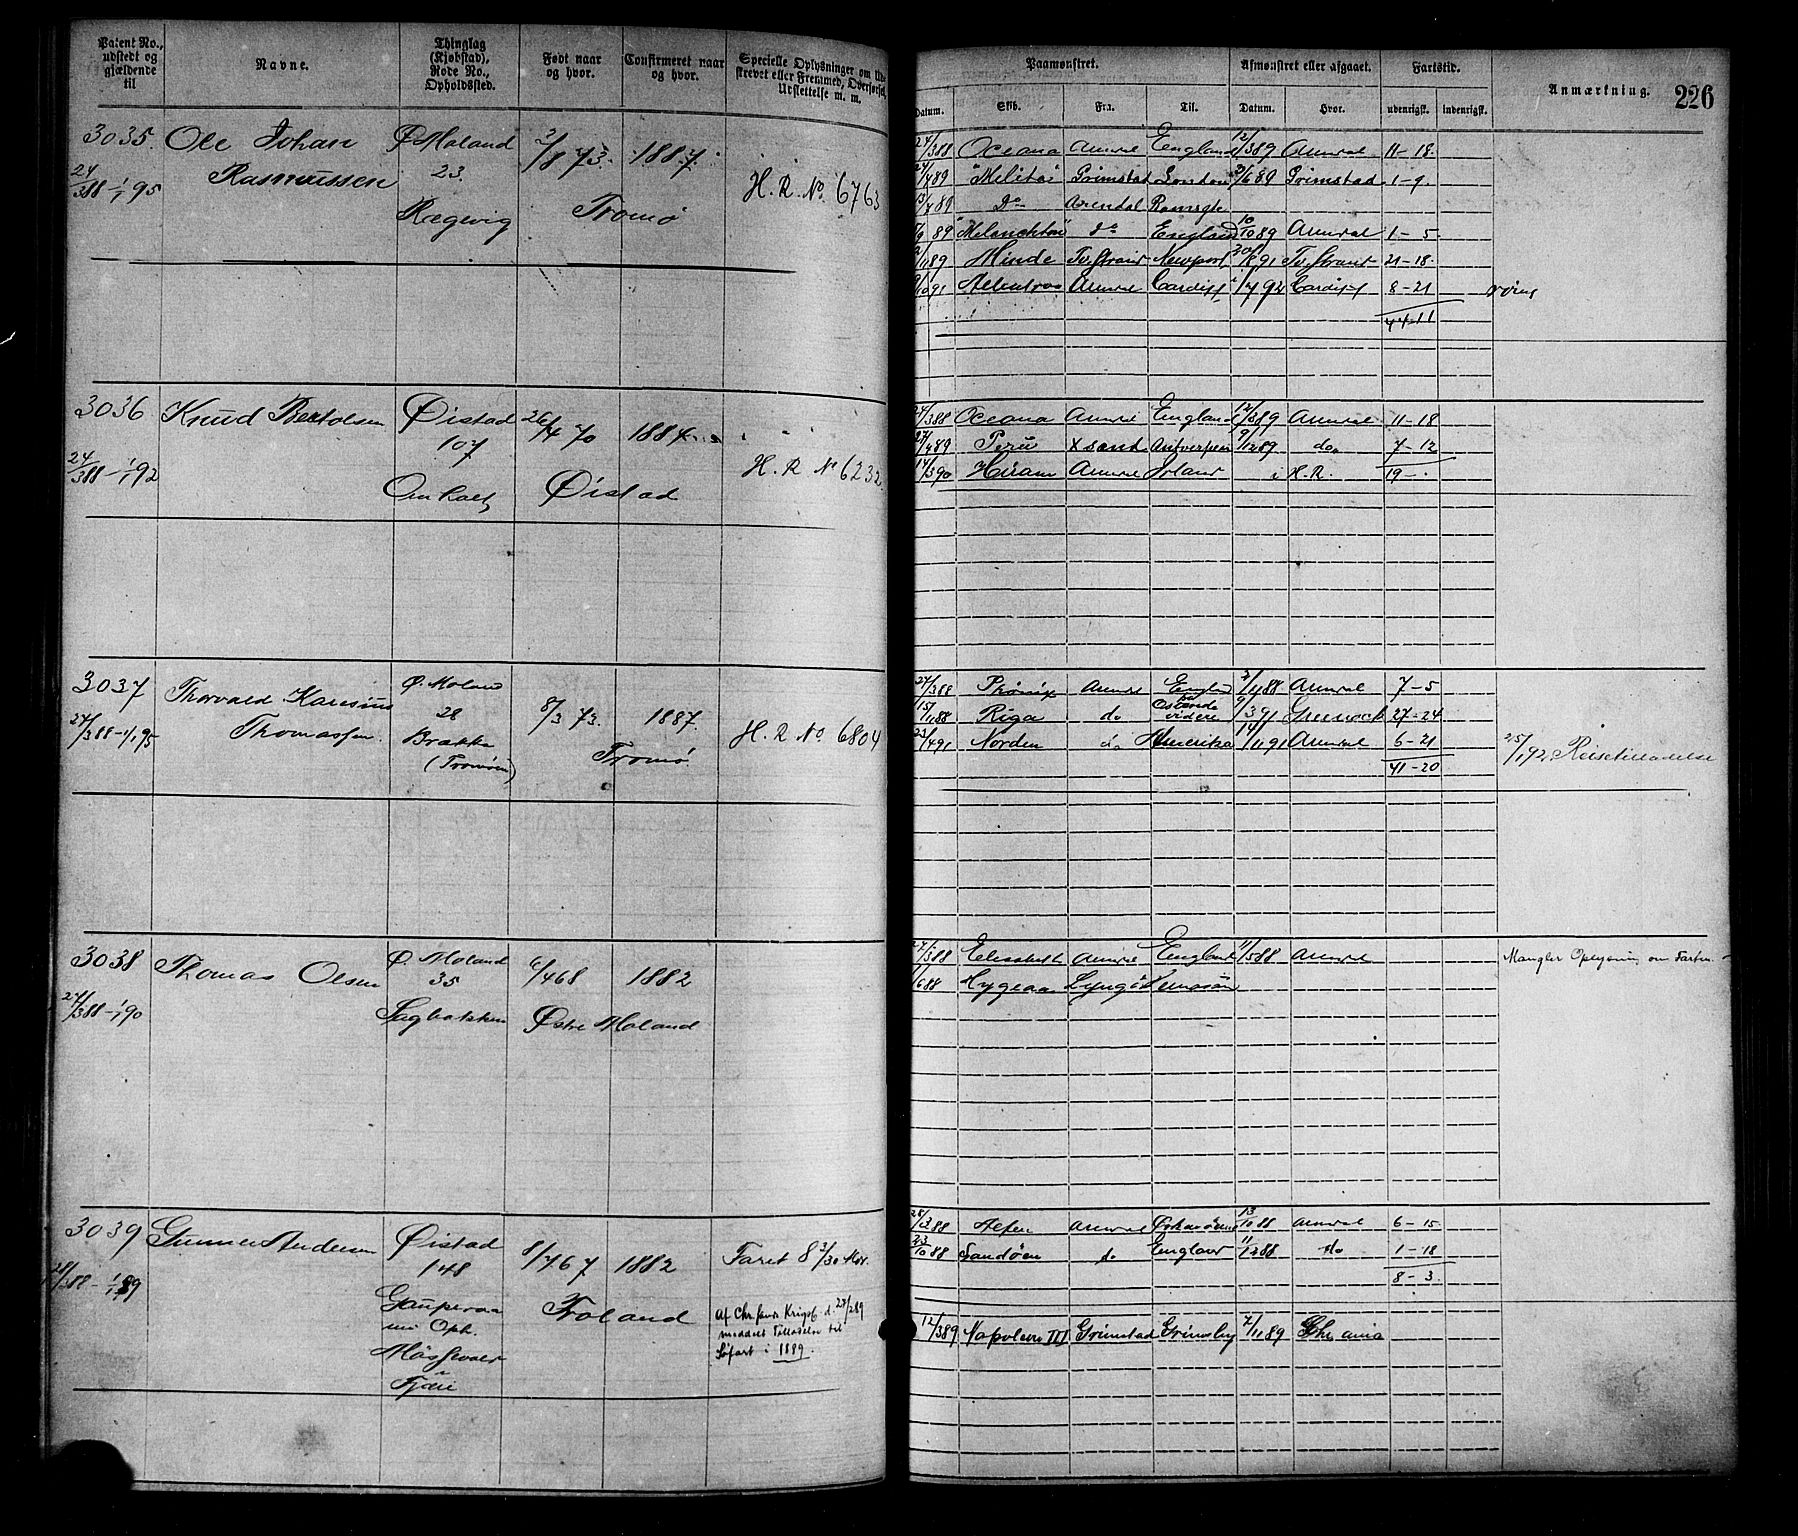 Patent No., udstedt og gjældende til
Navne.
Thinglag (Kjøbstad), Rode No., Opholdssted.
Født naar og hvor.
Confirmeret naar og hvor.
Specielle Oplysninger om
Paamønstret.
Afmønstret eller afgaaet.
Fartstid.
Anmærkning.
226
Datum.
Skib.
Fra.
Til.
Datum.
Hvor.
udenrigsk.
indenrigsk.
3035.
Ole Johan
Rasmussen
Ø. Moland
23.
Rægevig
2/8 73.
1887.
Tromø
H. R. No. 6763
24/3 88 - 1/1 95
24/3 88 Oceana Arendal England 12/3 89 Arendal 11-18.
"Melitas" Grimstad London /6 89 Grimstad 1-9.
13/7 89 Do Arendal
89 "Melanchton" do England 10/10 89 Arendal 1-5
89 Minde Tv.strand Newport 20/8 91 Tv.strand 21-18.
91 Arendal Cardiff 92 Cardiff 8-21
44-11
3036
Knud Bertolsen
Øistad
107
26/4 70
1884
Øistad
H. R. No 6232.
24/3 88 - 1/1 92
24/3 88 Oceana Arendal England 12/3 89 Arendal 11-18
27/4 89 Peru Xsand Antwerpen 9/12 89 do 7-12
14/3 90 Hiram Arendal i H.R. 19-.
3037
Thorvald Karenius
Thomassen.
Ø. Moland
28
Brække
(Tromøen)
8/3 73.
1887.
Tromø
H. R. No. 6804
27/3 88 - 1/1 95
27/3 88 Phønix Arendal England 88 Arendal 7-5
15/11 88 Riga do Ostende videre 9/3 91 Greenock 27-24
23/4 91 Norden do Amerika 14/11 91 Arendal 6-21
41-20
25/1 92 Reisetilladelse
3038
Thomas Olsen
Ø. Moland
35
Sagbakken
6/4 68
1882
Østre Moland
27/3 88 - 1/1 90
27/3 88 Elisabeth Arendal England 11/5 88 Arendal
Mangler Oplysning om Farten
/6 88 Hygeaa Lyngør
3039
Gunner Andersen
Øistad
148
8/4 67
1882
Froland
Faret 8 3/30 Mdr.
28/3 88 - 1/1 89
Oph.
Fjære
Af Chr.sands Krigsk. d. 23/2 89
meddelt Tilladelse til
Søfart i 1889.
28/3 88 Alfen Arendal 13/10 88 Arendal 6-15
23/10 88 Sandøen do England 11/12 88 do 1-18
8-3
12/3 89 Napoleon III Grimstad Grimsby 7/11 89 Chr.ania